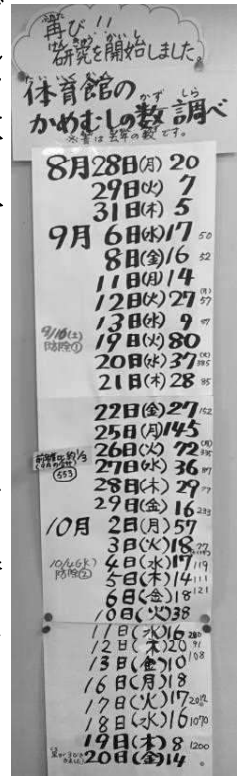 再び!!
けんきゅう かいし
研究を開始しました。
たいいくかん かず しら
体育館の
かめむしの数調べ
※青は去年の数です。
8月28日(月) 20
29日(火) 7
31日(木) 5
9月 6日(水)17 50
8日(金)16 52
11日(月)14
12日(火)27 57
13日(水) 9 97
9/16(土) 19日(火)80
防除①
20日(水)37
21日(木)28 95
22日(金)27 152
25日(月)145
26日(火)72
553
27日(水)36
28日(木)29
29日(金)16 233
10月 2日(月)57
3日(火)18
10/4(水) 4日(水)17 119
防除② 5日(木)14 111
6日(金)18 121
10日(火)38
11日(水)16 280
12日(木)20 91
13日(金)10 108
16日(月)18
17日(火)17
18日(水)16 1070
19日(木) 8 1200
20日(金)14